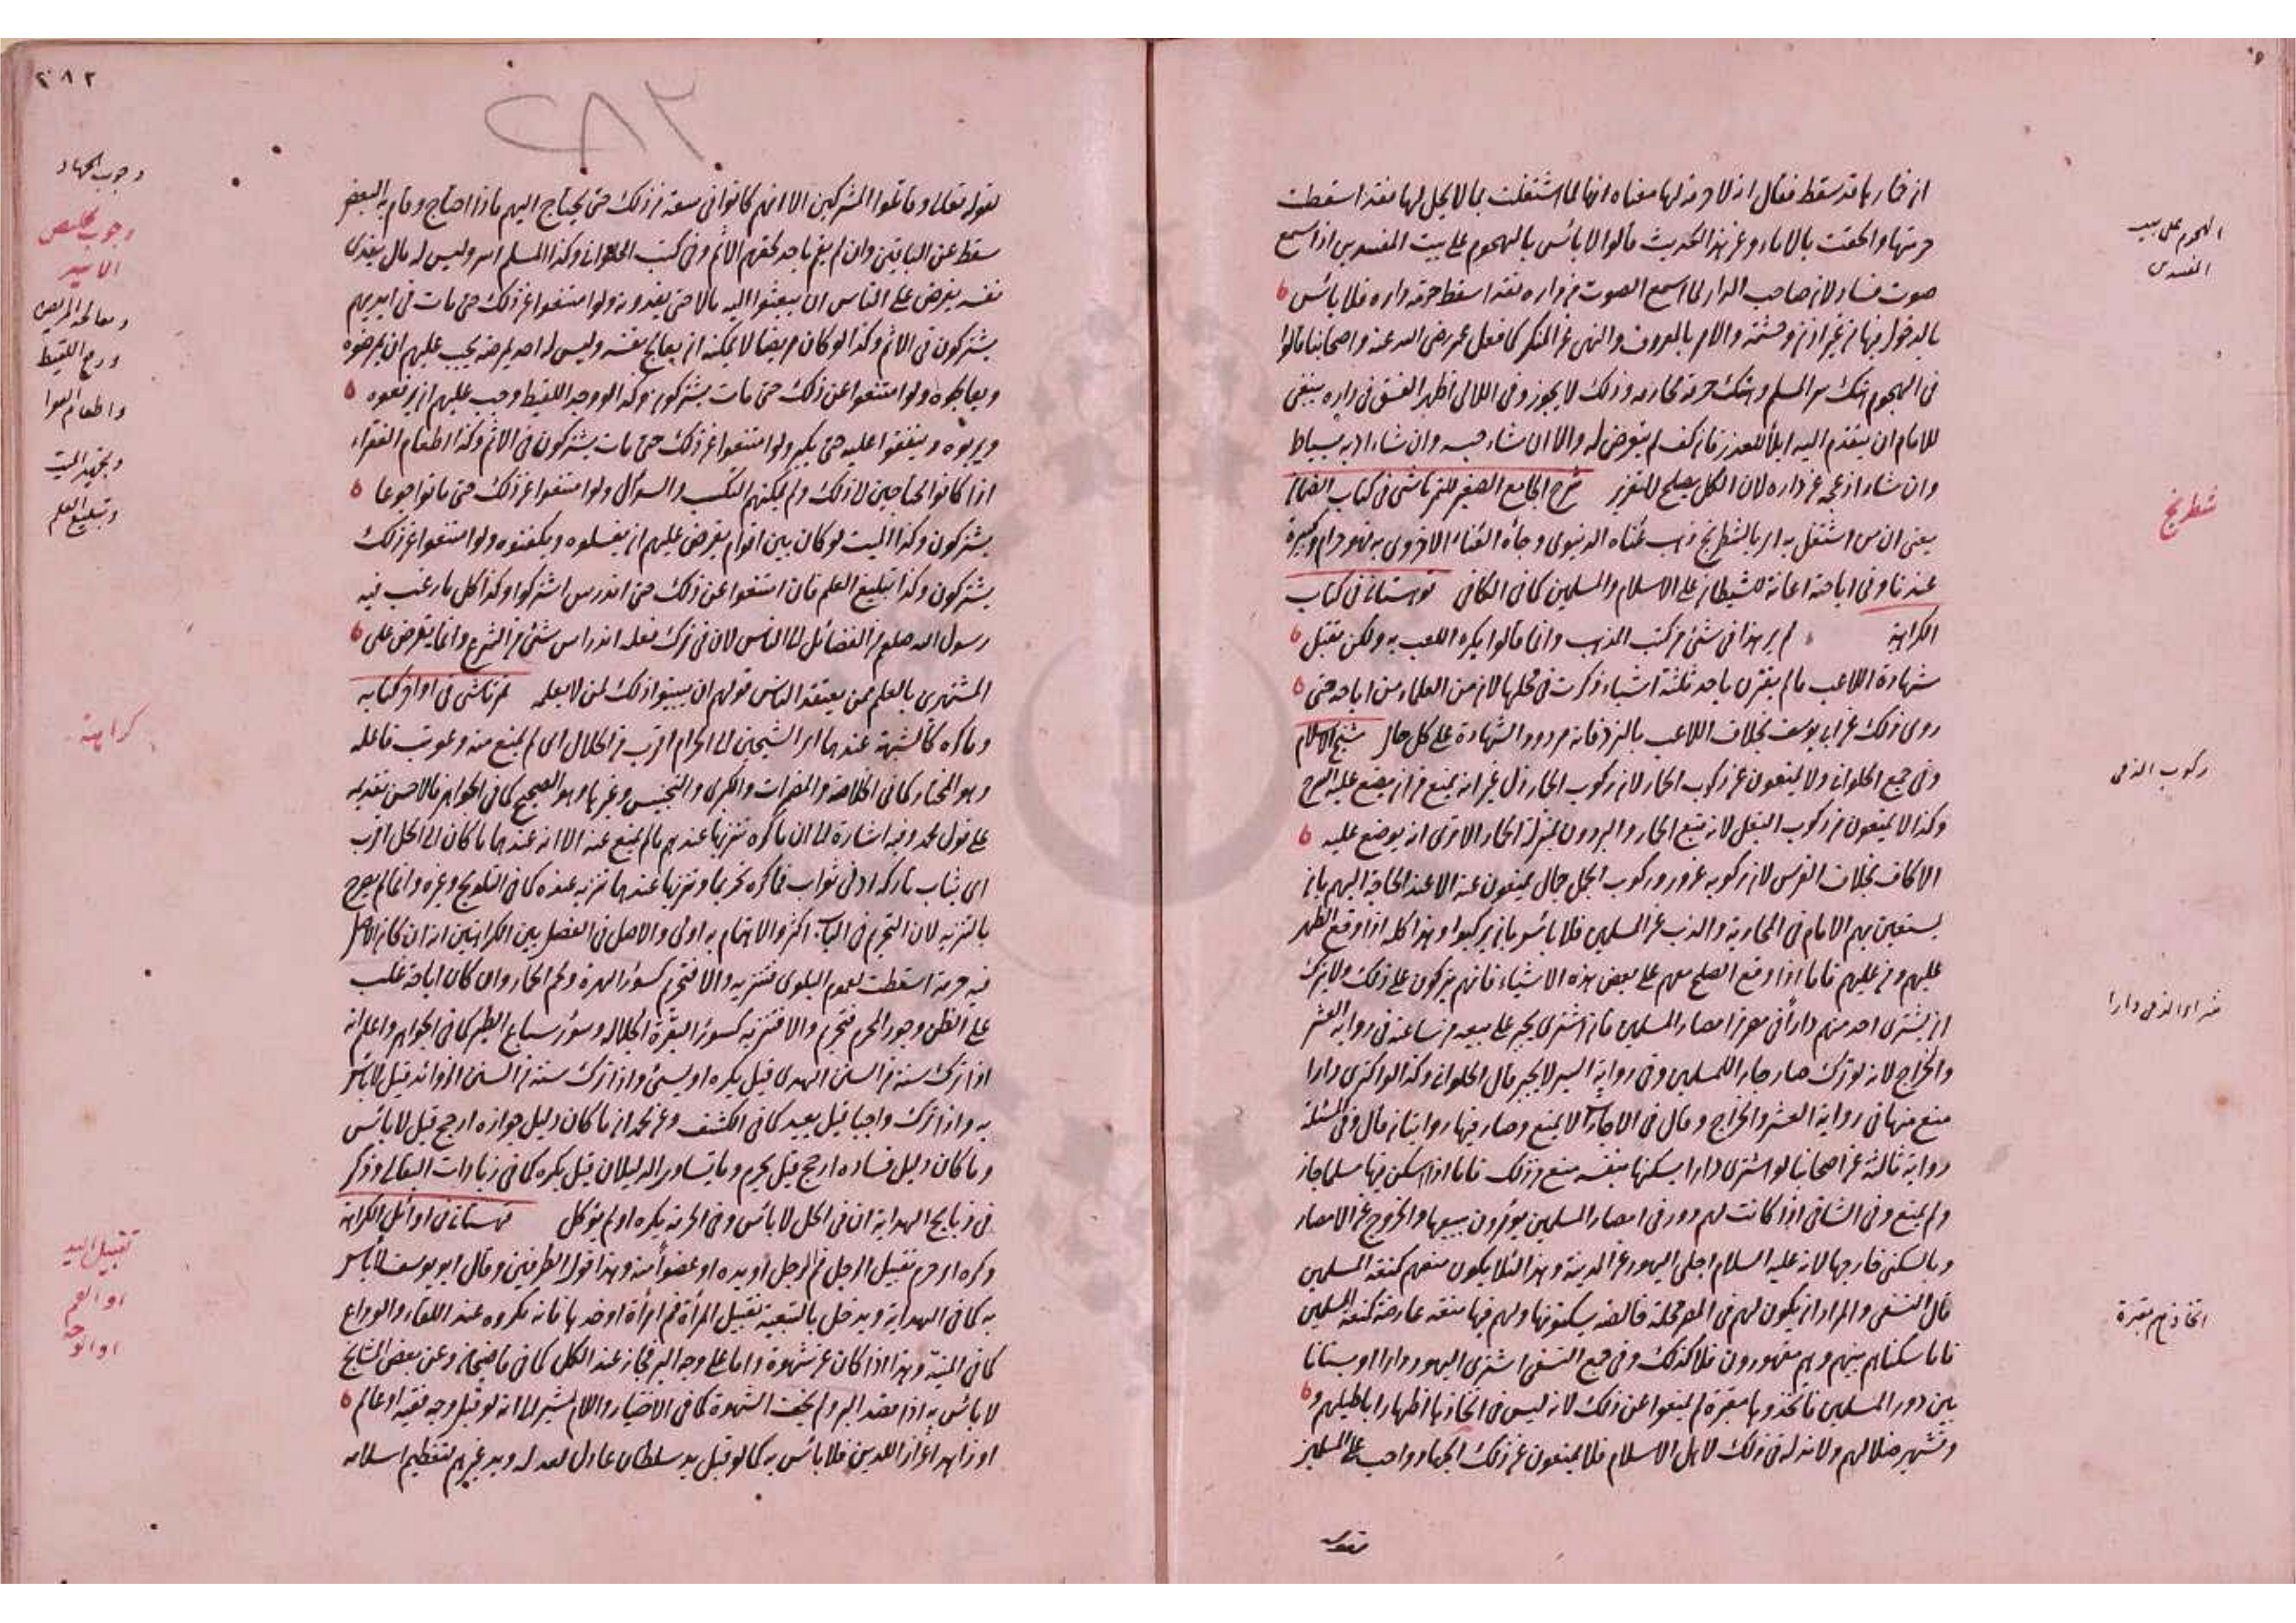 از خمارها قد سقط فقال انه لا حرمة لها معناه انها لما اشتغلت بما لا يحل لها فقد اسقطت
حرمتها والحقت بالاماء وعن هذا الحديث قالوا لا بأس بالهجوم على بيت المفسدين اذا سمع
الهجوم على بيت
المفسدين
صوت فساد لان صاحب الدار لما اسمع الصوت من داره فقد اسقط حرمة داره فلا بأس
بالدخول فيها من غير اذنه والامر بالمعروف والنهى عن المنكر كما فعل عمر رضى الله عنه واصحابنا قالوا
فى الهجوم هتك ستر المسلم وهتك حرمة محارمه وذلك لا يجوز وفى اللالى اظهر الفسق فى داره ينبغى
للامام ان يتقدم اليه ابلاً للعذر فان كف لم يتعرض له والا ان شاء حبسه وان شاء ادبه بسياط
وان شاء ازعجه عن داره لان الكل يصلح للتعزير شرح الجامع الصغير للتمرتاشى فى كتاب القضاء
شطرنج
يعنى ان من اشتغل به اى بالشطرنج ذهب عناه الدنيوى وجاءه العناء الاخروى به فهو حرام وكبيرة
عندنا وفى اباحته اعانة للشيطان على الاسلام والمسلمين كما فى الكافى قهستانى فى كتاب
الكراهة لم ير هذا فى شئ من كتب المذهب وانما قالوا يكره اللعب به ولكن يقبل
شهادة اللاعب ما لم يقترن باحد ثلثة اشياء ذكرت فى محلها لان من العلماء من اباحه حتى
روى ذلك عن ابى يوسف بخلاف اللاعب بالنرد فانه مردود الشهادة على كل حال شيخ الاسلام
ركوب الذمى
وفى جمع الحلوانى ولا يمنعون عن ركوب الحمار لان ركوب الحمار ذل غير انه يمنع من ان يضع عليه السرج
وكذا لا يمنعون من ركوب البغل لانه نتيج الحمار والبرذون بمنزلة الحمار الا ترى انه يوضع عليه
الاكاف بخلاف الفرس لان ركوبه عز وركوب الجمل جمال يمنعون عنه الا عند الحاجة اليهم بان
يستعين بهم الامام فى المحاربة والذب عن المسلمين فلا بأس بان يركبوا وهذا كله اذا وقع الظهر
عليهم فاما اذا وقع الصلح معهم على بعض هذه الاشياء فانهم يتركون على ذلك ولا يترك
شراء الذمى دارا
ان يشترى احد منهم داراً فى مصر من امصار المسلمين فان اشترى يجبر على بيعه من ساعته فى رواية العشر
والخراج لانه لو ترك صار جار اللمسلمين وفى رواية السير لا يجبر قال الحلوانى وكذا لو اكترى دارا
منع منها فى رواية العشر والخراج وقال فى الاجارات لا يمنع وصار فيها روايتان قال وفى المسئلة
رواية ثالثة عن اصحابنا لو اشترى دارا يسكنها بنفسه منع من ذلك فاما اذا اسكن فيها مسلما جاز
ولم يمنع وفى الشافى اذا كانت لهم دور فى امصار المسلمين يؤمرون ببيعها والخروج عن الامصار
وبالسكنى خارجها لانه عليه السلام اجلى اليهود عن المدينة وهذا لئلا يكون منعهم كمنعة المسلمين
اتخاذهم مقبرة
قال النسفى والمراد ان يكون لهم فى المصر محلة خالصة يسكنونها ولهم فيها منعة عارضة كمنعة المسلمين
فاما سكناهم بينهم وهم مقهورون فلا كذلك وفى جمع النسفى اشترى اليهود دارا او بستانا
بين دور المسلمين فاتخذوها مقبرة لم يمنعوا عن ذلك لانه ليس فى اتخاذها اظهار اباطيلهم و
وتشهير ضلالهم ولا مذلة فى ذلك لاهل الاسلام فلا يمنعون عن ذلك الجهاد واجب على المسلمين
بقوله
٢٨٢
٢٨٢
وجوب الجهاد
لقوله تعالى وقاتلوا المشركين الا انهم كانوا فى سعة من ذلك حتى يحتاج اليهم فاذا احتاج وقام به البعض
وجوب تخليص
الاسير
سقط عن الباقين وان لم يقم به احد لحقهم الاثم وفى كتب الحلوانى وكذا المسلم اسر وليس له مال يفدى
نفسه يفرض على الناس ان يبعثوا اليه مالا حتى يفدونه ولو امتنعوا عن ذلك حتى مات فى ايديهم
ومعالجة المريض
يشتركون فى الاثم وكذا لو كان مريضا لا يمكنه ان يعالج نفسه وليس له احد يمرضه يجب عليهم ان يمرضوه
ورفع اللقيط
ويعالجوه ولو امتنعوا عن ذلك حتى مات يشتركون وكذا لو وجد اللقيط وجب عليهم ان يرفعوه
واطعام الفقراء
ويربوه وينفقوا عليه حتى يكبر ولو امتنعوا عن ذلك حتى مات يشتركون فى الاثم وكذا اطعام الفقراء
وتجهيز الميت
اذا كانوا محتاجين لذلك ولم يمكنهم التكسب والسؤال ولو امتنعوا عن ذلك حتى ماتوا جوعا
وتبليغ العلم
يشتركون وكذا الميت لو كان بين اقوام يفرض عليهم ان يغسلوه ويكفنوه ولو امتنعوا عن ذلك
يشتركون وكذا تبليغ العلم فان امتنعوا عن ذلك حتى اندرس اشتركوا وكذا كل ما رغب فيه
رسول الله صلعم من الفضائل الى الناس لان فى ترك فعله اندراس شئ من الشرع وانما يفرض على
المشتهرى بالعلم ممن يعتقد الناس قولهم ان يبينوا ذلك لمن لا يعلمه تمرتاشى فى اواخر كتابه
كراهة
وما كره كالشبهة عندهما اى الشيخين الى الحرام اقرب من الحلال اى لم يمنع منه وعوتب فاعله
وهو المختار كما فى الخلاصة والمضمرات والكبرى والتجنيس وغيرها وهو الصحيح كما فى الجواهر فالاحسن تقديمه
على قول محمد وفيه اشارة الى ان ما كره تنزيها عندهم ما لم يمنع عنه الا انه عندهما ما كان الى الحل اقرب
اى يثاب تاركه ادنى ثواب فما كره تحريما وتنزيها عندهما تنزيه عنده كما فى التلويح وغيره وانما لم يصرح
بالتنزيه لان التحريم فى الباب اكثر والاهتمام به اولى والاصل فى الفصل بين الكراهتين انه ان كان الاصل
فيه حرمة اسقطت لعموم البلوى فتنزيه والا فتحريم كسؤر الهرة ولحم الحمار وان كان اباحة غلب
على الظن وجود المحرم فتحريم والا فتنزيه كسؤر البقرة الجلالة وسؤر سباع الطير كما فى الجواهر واعلم انه
اذا ترك سنة من السنن الهدى قيل يكره او يسئ واذا ترك سنة من السنن الزوائد قيل لا بأس
به واذا ترك واجبا قيل يعيد كما فى الكشف وعن محمد ان ما كان دليل جوازه ارجح قيل لا بأس
وما كان دليل فساده ارجح قيل يحرم وما تساوى الدليلان قيل يكره كما فى زيادات البقالى وذكر
فى ذبايح الهداية ان فى الحل لا بأس وفى الحرمة يكره او لم يؤكل قهستانى فى اوائل الكراهة
تقبيل اليد
او الفم
او الوجه
وكره او حرم تقبيل الرجل فم الرجل او يده او عضواً منه وهذا قول الطرفين وقال ابو يوسف لا بأس
به كما فى الهداية ويدخل بالتبعية تقبيل المرأة فم امرأة او خدها فانه مكروه عند اللقاء والوداع
كما فى المنية وهذا اذا كان عن شهوة واما على وجه البر فجاز عند الكل كما فى قاضيخان وعن بعض المشايخ
لا بأس به اذا قصد البر ولم يخف الشهوة كما فى الاختيار واللام مشير الى انه لو قبل وجه فقيه او عالم
او زاهد اعزاز اللدين فلا بأس به كما لو قبل يد سلطان عادل لعدله ويد غيرهم لتعظيم اسلامه